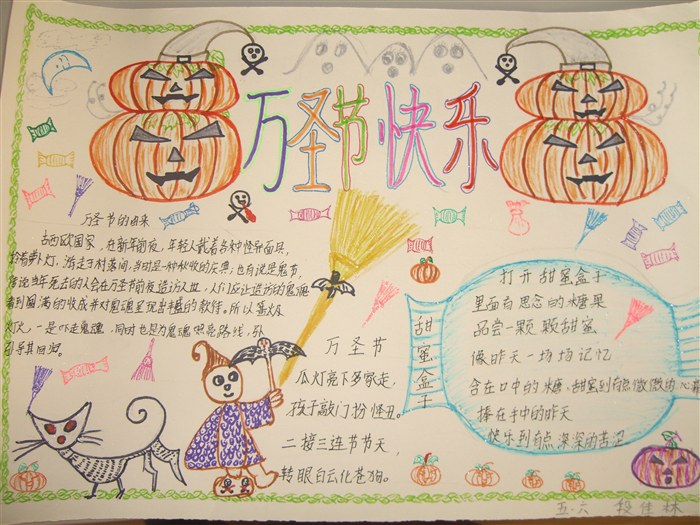 万圣节快乐
万圣节的由来
古西欧国家，在新年前夜，年轻人戴着各种怪异面具，
拎着萝卜灯，游走于村落间，当时是一种秋收的庆典；也有说是鬼节，
传说当年死去的人会在万圣前夜造访人世，人们应让造访的鬼魂
看到圆满的收成并对鬼魂呈现丰盛的款待。所以篝火
灯火，一是吓走鬼魂，同时也是为鬼魂照亮路线，
引导其回归。
万圣节
瓜灯亮下多家走，
孩子敲门扮怪丑。
二接三连节节天，
转眼白云化苍狗。
甜蜜盒子
打开甜蜜盒子
里面有思念的糖果
品尝一颗颗甜蜜
像昨天一场场记忆
含在口中的糖、甜蜜到有微微的心
捧在手中的昨天
快乐到有点深深的苦涩
五.六 段佳林